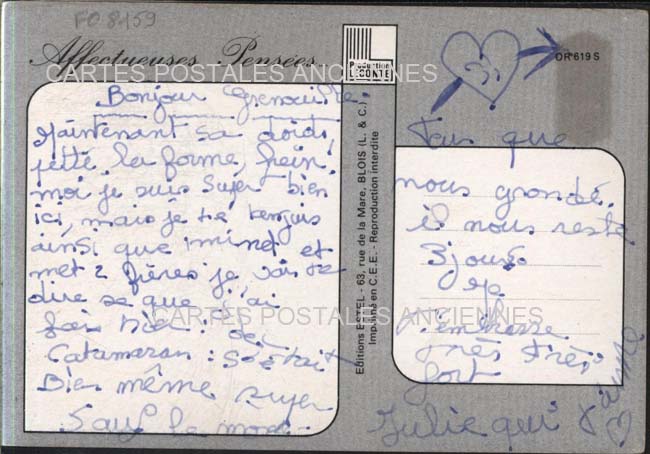 FO 8159
Affectueuses Pensées
CARTES POSTALES ANCIENNES
Production
LECONTE
OR 619 S
Bonjour Grenouille
Maintenant sa doids
jetté la forme, hein,
moi je suis super bien
ici, mais je te
ainsi que minet et
met 2 frères je vais te
dire se que j'ai
fais hier: de
Catamaran: Sétait
Bien même super
Sauf le
Editions ESTEL - 63, rue de la Mare, BLOIS (L. & C.)
Imprimé en C.E.E. - Reproduction interdite
Tous que
nous grondé.
il nous reste
3 jours
Je
t'embrasse
très très
fort
CARTES POSTALES ANCIENNES
Julie qui t'aime